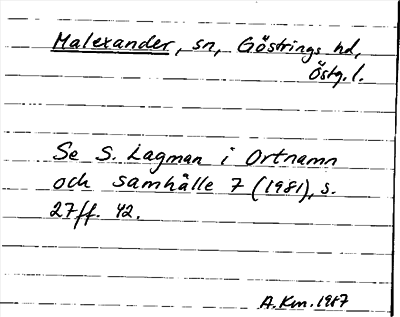 Malexander, sn, Göstrings hd,
Östg. l.
Se S. Lagman i Ortnamn
och samhälle 7 (1981), s.
27ff. 42.
A.Km. 1987